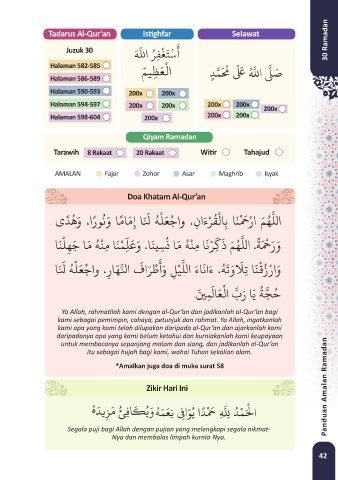 Tadarus Al-Qur'an
Istighfar
Selawat
30 Ramadan
Juzuk 30
أَسْتَغْفِرُ اللَّهَ
الْعَظِيمَ
صَلَّى اللَّهُ عَلَى مُحَمَّدٍ
Halaman 582-585
Halaman 586-589
Halaman 590-593
Halaman 594-597
Halaman 598-604
200x 200x
200x 200x
200x
200x 200x
200x 200x
200x
Qiyam Ramadan
Tarawih 8 Rakaat 20 Rakaat Witir Tahajud
AMALAN Fajar Zohor Asar Maghrib Isyak
Doa Khatam Al-Qur'an
اللَّهُمَّ ارْحَمْنَا بِالْقُرْءَانِ، وَاجْعَلْهُ لَنَا إِمَامًا وَنُورًا، وَهُدًى
وَرَحْمَةً، اللَّهُمَّ ذَكِّرْنَا مِنْهُ مَا نَسِينَا، وَعَلِّمْنَا مِنْهُ مَا جَهِلْنَا
وَارْزُقْنَا تِلَاوَتَهُ، ءَانَاءَ اللَّيْلِ وَأَطْرَافَ النَّهَارِ، وَاجْعَلْهُ لَنَا
حُجَّةً يَا رَبَّ الْعَالَمِينَ.
Ya Allah, rahmatilah kami dengan al-Qur'an dan jadikanlah al-Qur'an bagi
kami sebagai pemimpin, cahaya, petunjuk dan rahmat. Ya Allah, ingatkanlah
kami apa yang kami telah dilupakan daripada al-Qur'an dan ajarkanlah kami
daripadanya apa yang kami belum ketahui dan kurniakanlah kami keupayaan
untuk membacanya sepanjang malam dan siang, dan jadikanlah al-Qur'an
itu sebagai hujah bagi kami, wahai Tuhan sekalian alam.
*Amalkan juga doa di muka surat 58
Zikir Hari Ini
الْحَمْدُ لِلَّهِ حَمْدًا يُوَافِي نِعَمَهُ وَيُكَافِئُ مَزِيدَهُ
Segala puji bagi Allah dengan pujian yang melengkapi segala nikmat-
Nya dan membalas limpah kurnia-Nya.
Panduan Amalan Ramadan
42